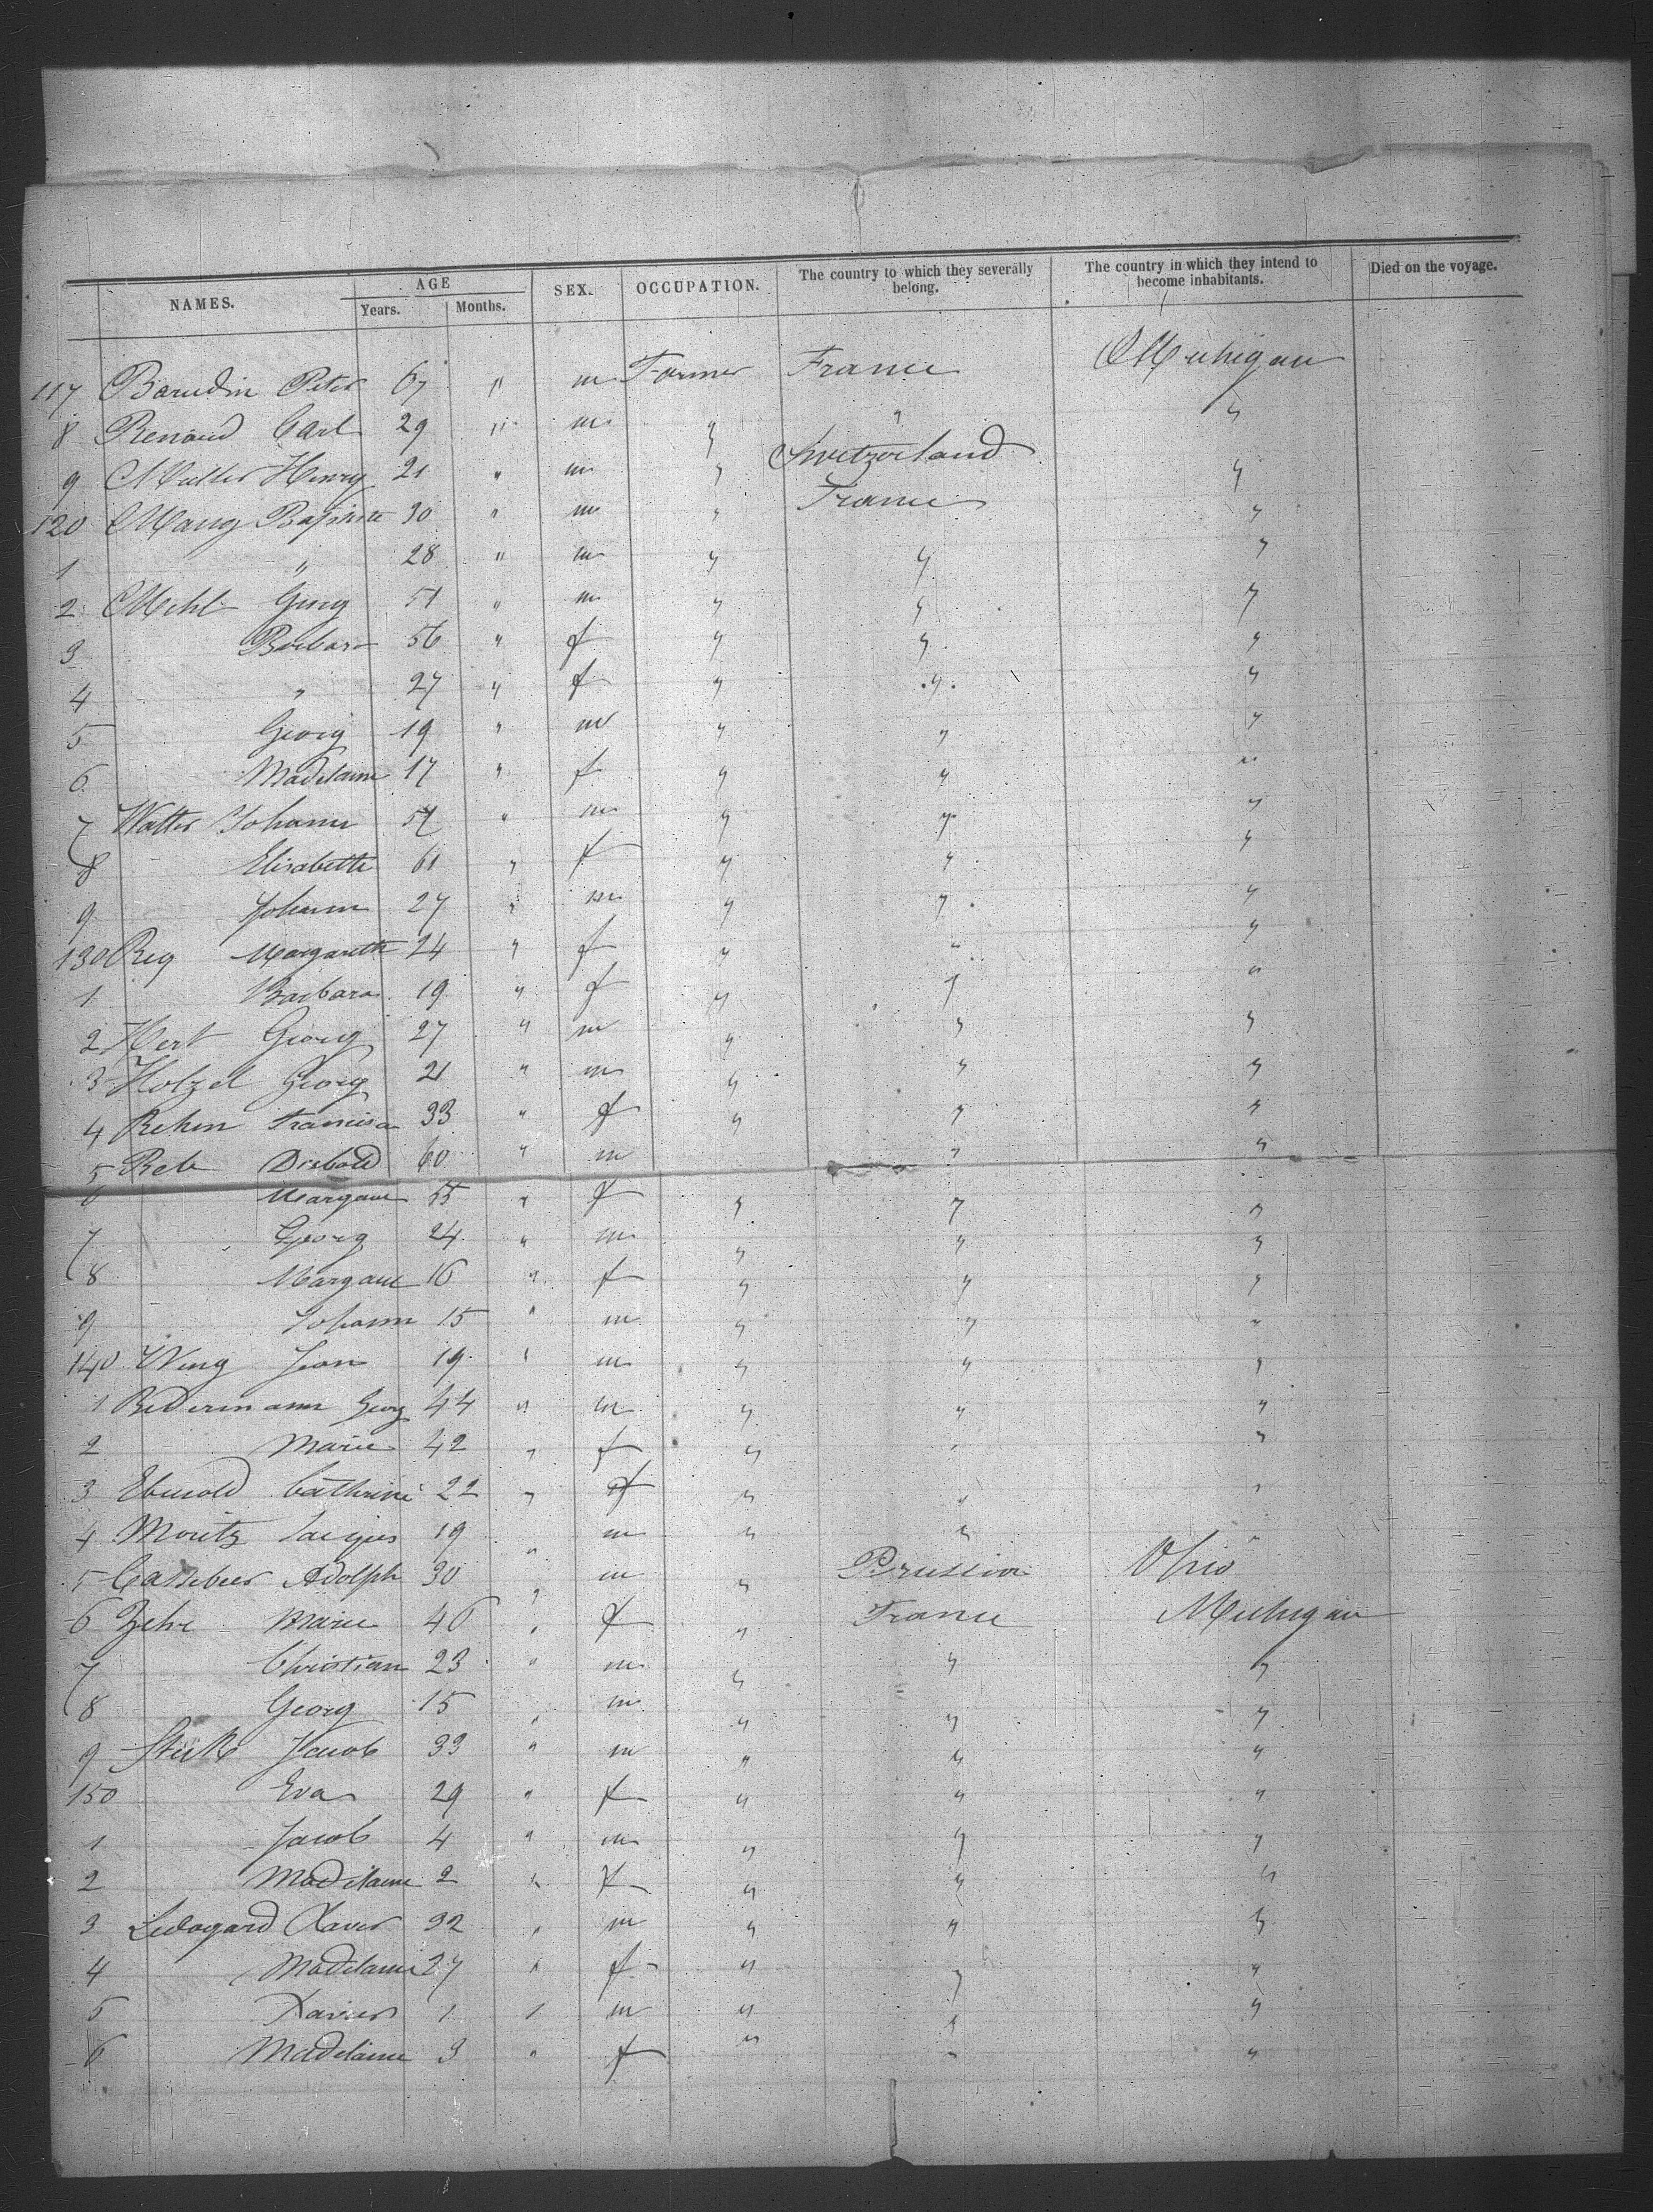 NAMES. AGE Years. Months. SEX. OCCUPATION. The country to which they severally belong. The country in which they intend to become inhabitants. Died on the voyage.
117 Barudin Peter 67 " m Farmer France Michigan
8 Renaud Carl 29 " m " " "
9 Muller Henry 21 " m " Switzerland "
120 Mang Baptiste 30 " m " France "
1 " 28 " m " " "
2 Mehl Georg 51 " m " " "
3 Barbara 56 " f " " "
4 " 27 " f " " "
5 Georg 19 " m " " "
6 Madelaine 17 " f " " "
7 Walter Johann 57 " m " " "
8 Elisabetha 61 " f " " "
9 Johann 27 " m " " "
130 Rey Margareth 24 " f " " "
1 Barbara 19 " f " " "
2 Hert Georg 27 " m " " "
3 Holzel Georg 21 " m " " "
4 Rehm Francisca 33 " f " " "
5 Reb Diebold 60 " m " "
6 Margaret 55 " f " " "
7 Georg 24 " m " " "
8 Margaret 16 " f " " "
9 Johann 15 " m " " "
140 Weng Jean 19 " m " " "
1 Bedermann Georg 44 " m " " "
2 Marie 42 " f " " "
3 Cathrine 22 " f " " "
4 Moritz Jacques 19 " m " " "
5 Cassebeer Adolph 30 " m " Prussia Ohio
6 Zehr Marie 46 " f " France Michigan
7 Christian 23 " m " " "
8 Georg 15 " m " " "
9 Jacob 33 " m " " "
150 Eva 29 " f " " "
1 Jacob 4 " m " " "
2 Madelaine 2 " f " " "
3 Ledogard Xaver 32 " m " " "
4 Madelaine 27 " f " " "
5 Xavier 1 1 m " " "
6 Madelaine 3 " f " " "